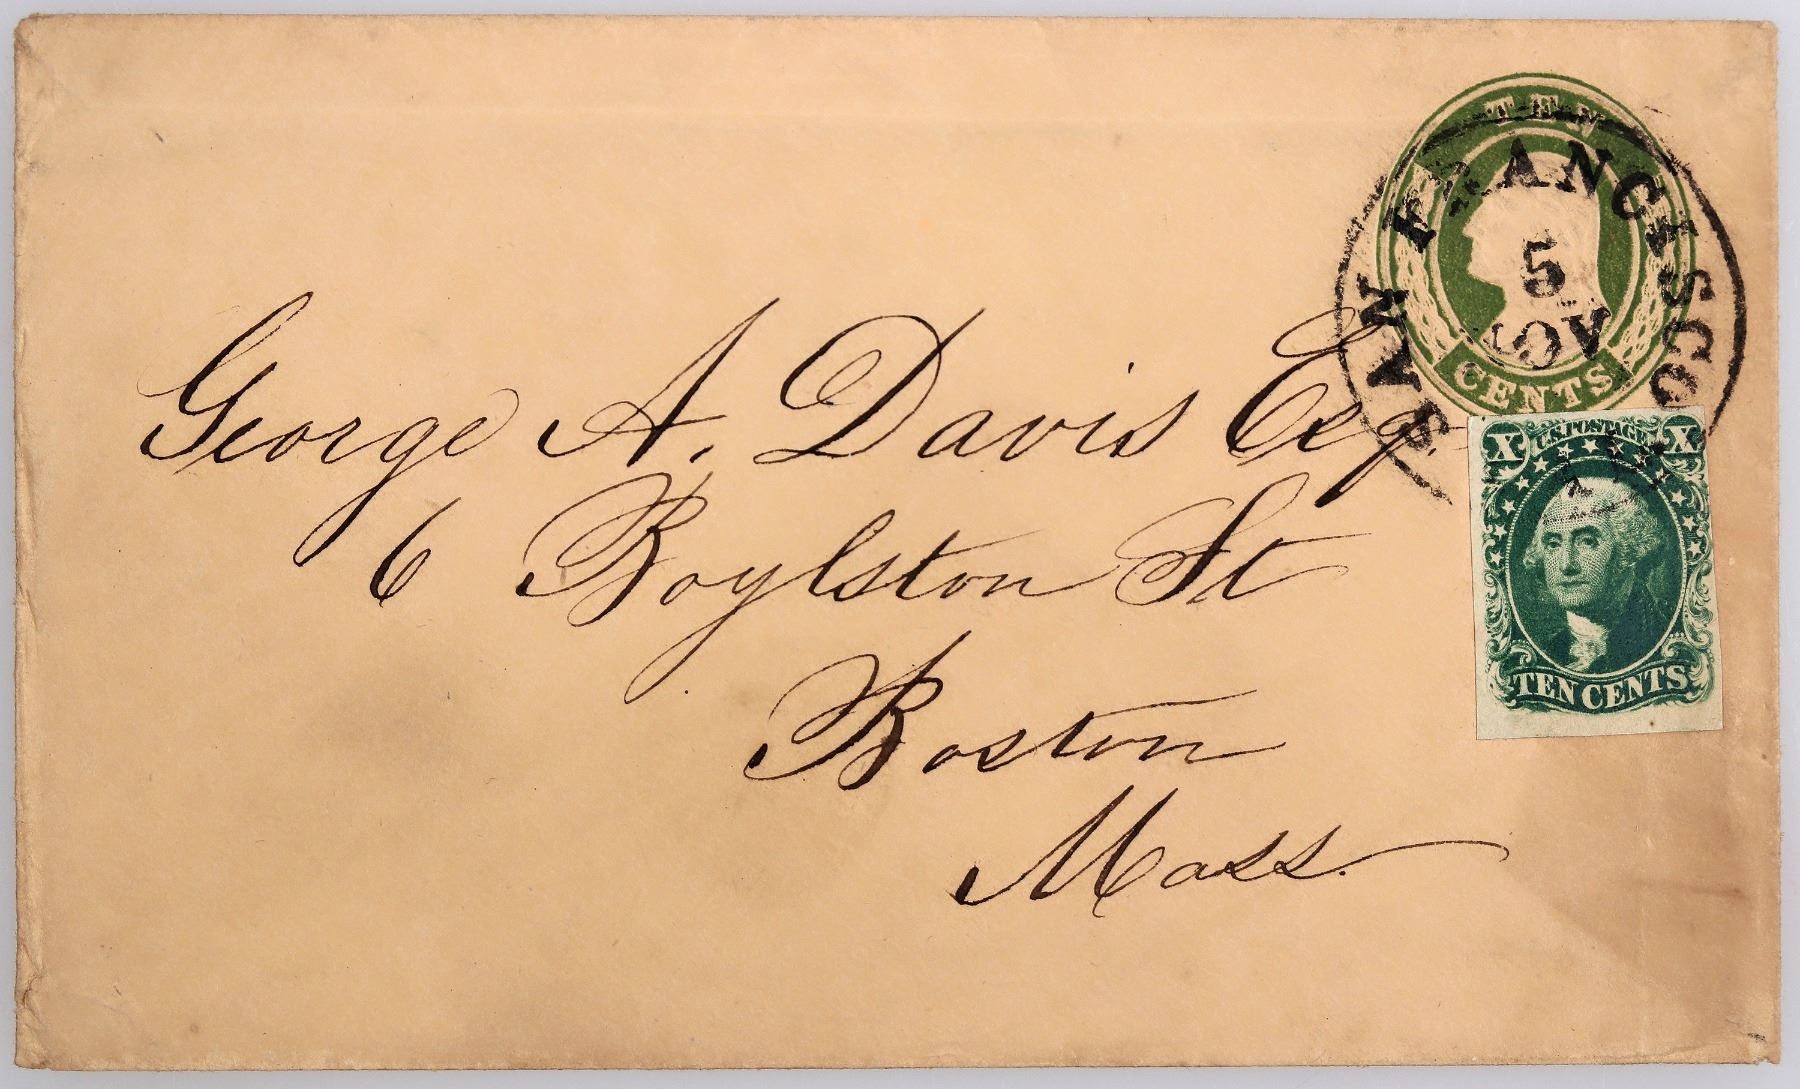 TEN
SAN FRANCISCO
5
NOV
CENTS
George A. Davis Esq.
6 Boylston St
Boston
Mass.
X U.S. POSTAGE X
TEN CENTS